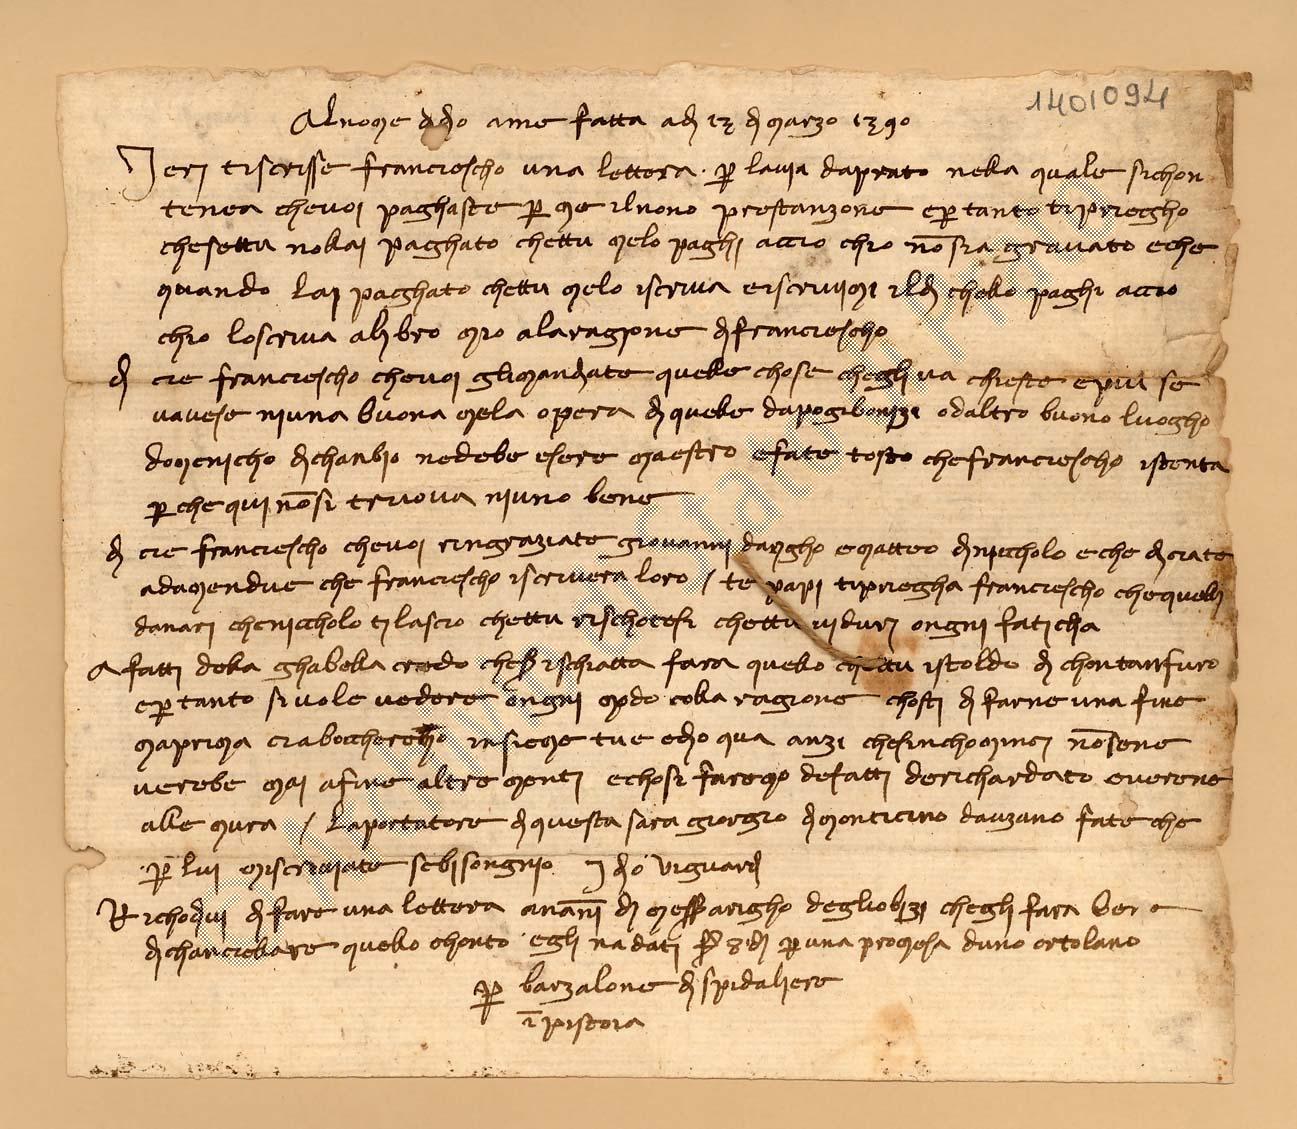 1401094
Al nome di dio ame fatta a di 13 di marzo 1390
Ieri ti scrisse franciescho una lettera per la via da prato nella quale si chon
tenea che voi paghaste per me il nono prestanzone e per tanto ti priegho
che se ttu nollai paghato che ttu melo paghi accio chio non sia gravato e che
quando lai paghato che ttu melo iscriva e iscrivimi il di chello paghi accio
chio lo scriva a libro mio a la ragione di franciescho
di cie franciescho che voi gli mandiate quelle chose che gli va chieste e piu se
vavese niuna buona mela opera di quelle da pogibonizi o daltro buono luogho
domenicho di chanbio ne debe esere maestro e fate tosto che franciescho istenta
per che qui non si truova niuno bene
di cie franciescho che voi ringraziate giovanni darigho e matteo di niccholo e che diciate
adamendue che franciescho iscrivera loro / te papi ti priegha franciescho che quelli
danari che niccholo ti lascio che ttu rischotesi che ttu vi duri ongni faticha
A fatti della ghabella credo che ser ischiatta fara quello che ttu istoldo di
e per tanto si vole vedere ongni modo colla ragione chosti di farne una fine
ma prima ci aboccheremo insieme tue ed io qua anzi che si nchominci non se ne
verebe mai a fine altremonti e chosi faremo de fatti de richardato e verene
alle mura / laportatore di questa sara giorgio di monticino da uzano fate che
per lui mi scriviate se bisongnio I dio vi guardi
Richordivi di fare una lettera a nanni di messer arigho degli obizi che gli fara bene
di chanciellare quello chonto egli na dati 8 di per una promesa duno ortolano
per barzalone di spidaliere
in pistoia